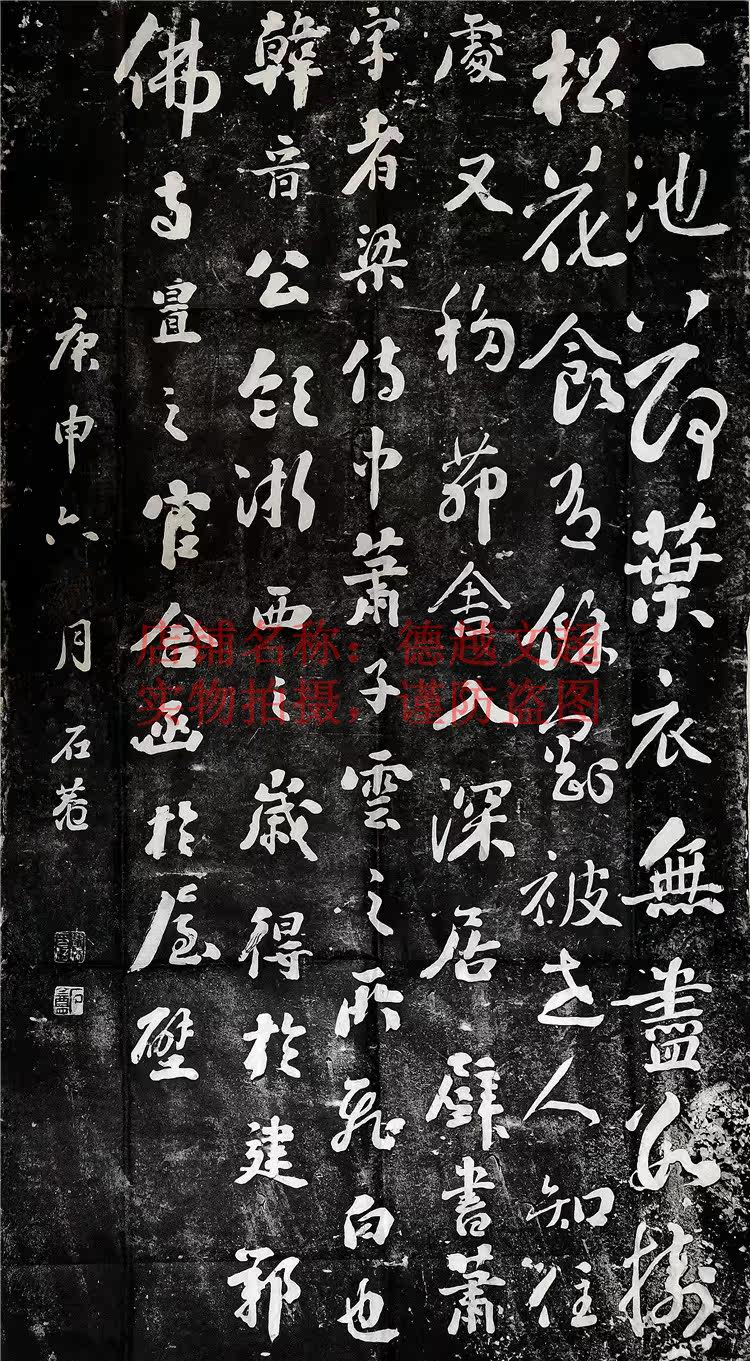 一池荷葉衣無盡数樹
松花食有餘剛被世人知住
處又移茆舍入深居壁書蕭
字者梁侍中蕭子雲之所飛白也
韓晉公領浙西之歲得於建鄴
佛寺置之官舍凾於屋壁
庚申六月石菴
店铺名称：德越文
实物拍摄，谨防盗图